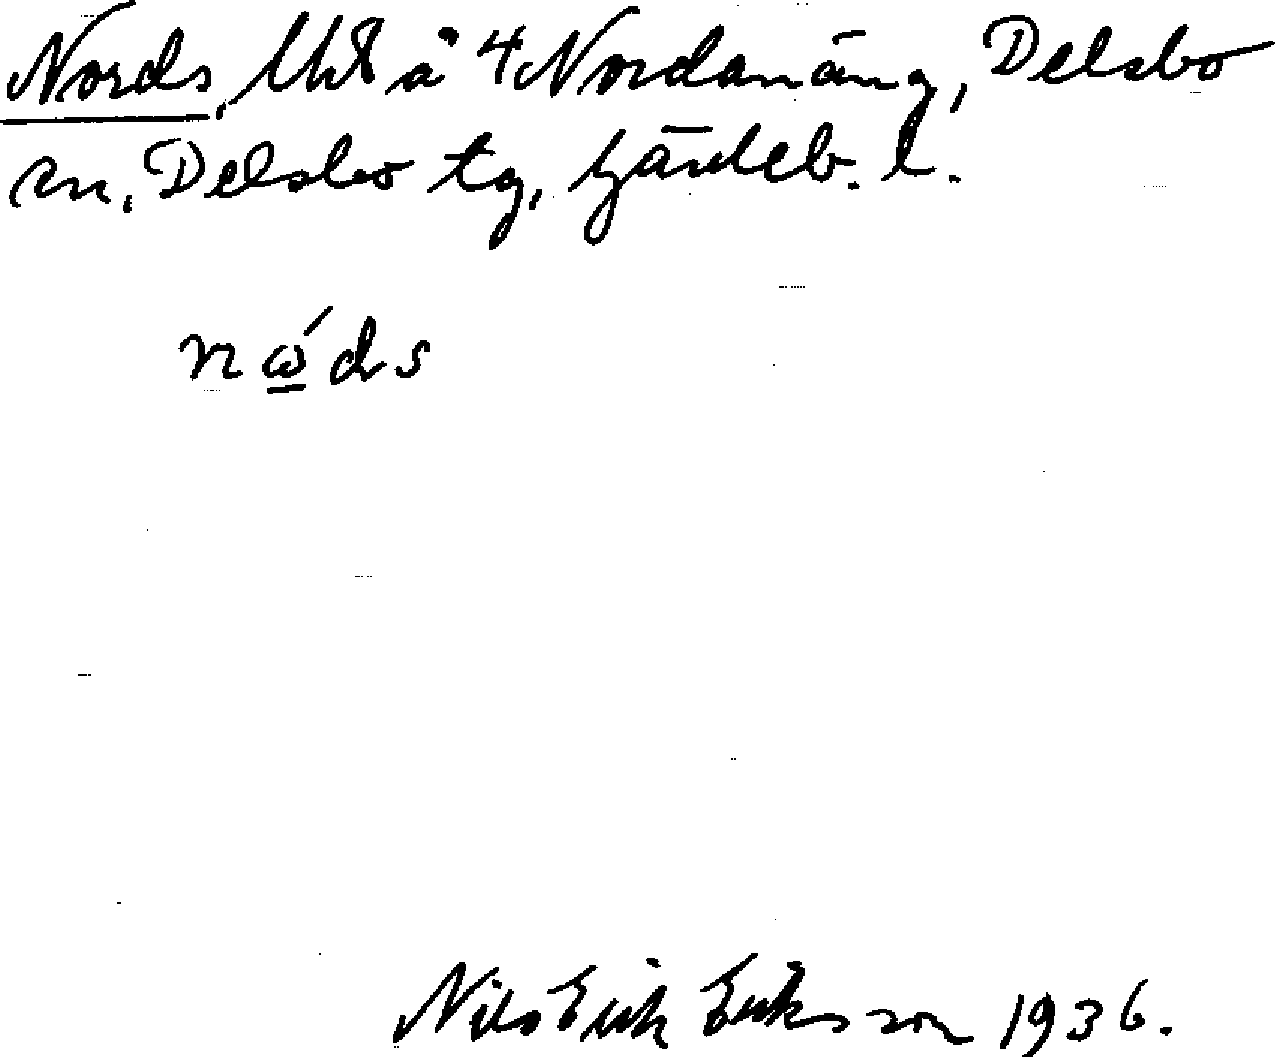 Nords, Uht å 4 Nordanäng, Delsbo
sn, Delsbo tg, Gävleb. l.
nώds
Nils Erik Eriksson 1936.